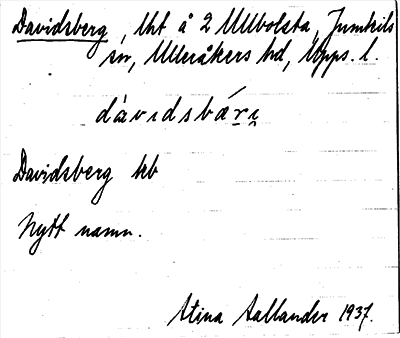 Davidsberg, lht å 2 Ullbolsta, Jumkils
sn, Ulleråkers hd, Upps. l.
dávidsbári̯
Davidsberg hb
Nytt namn.
Stina Sallander 1937.